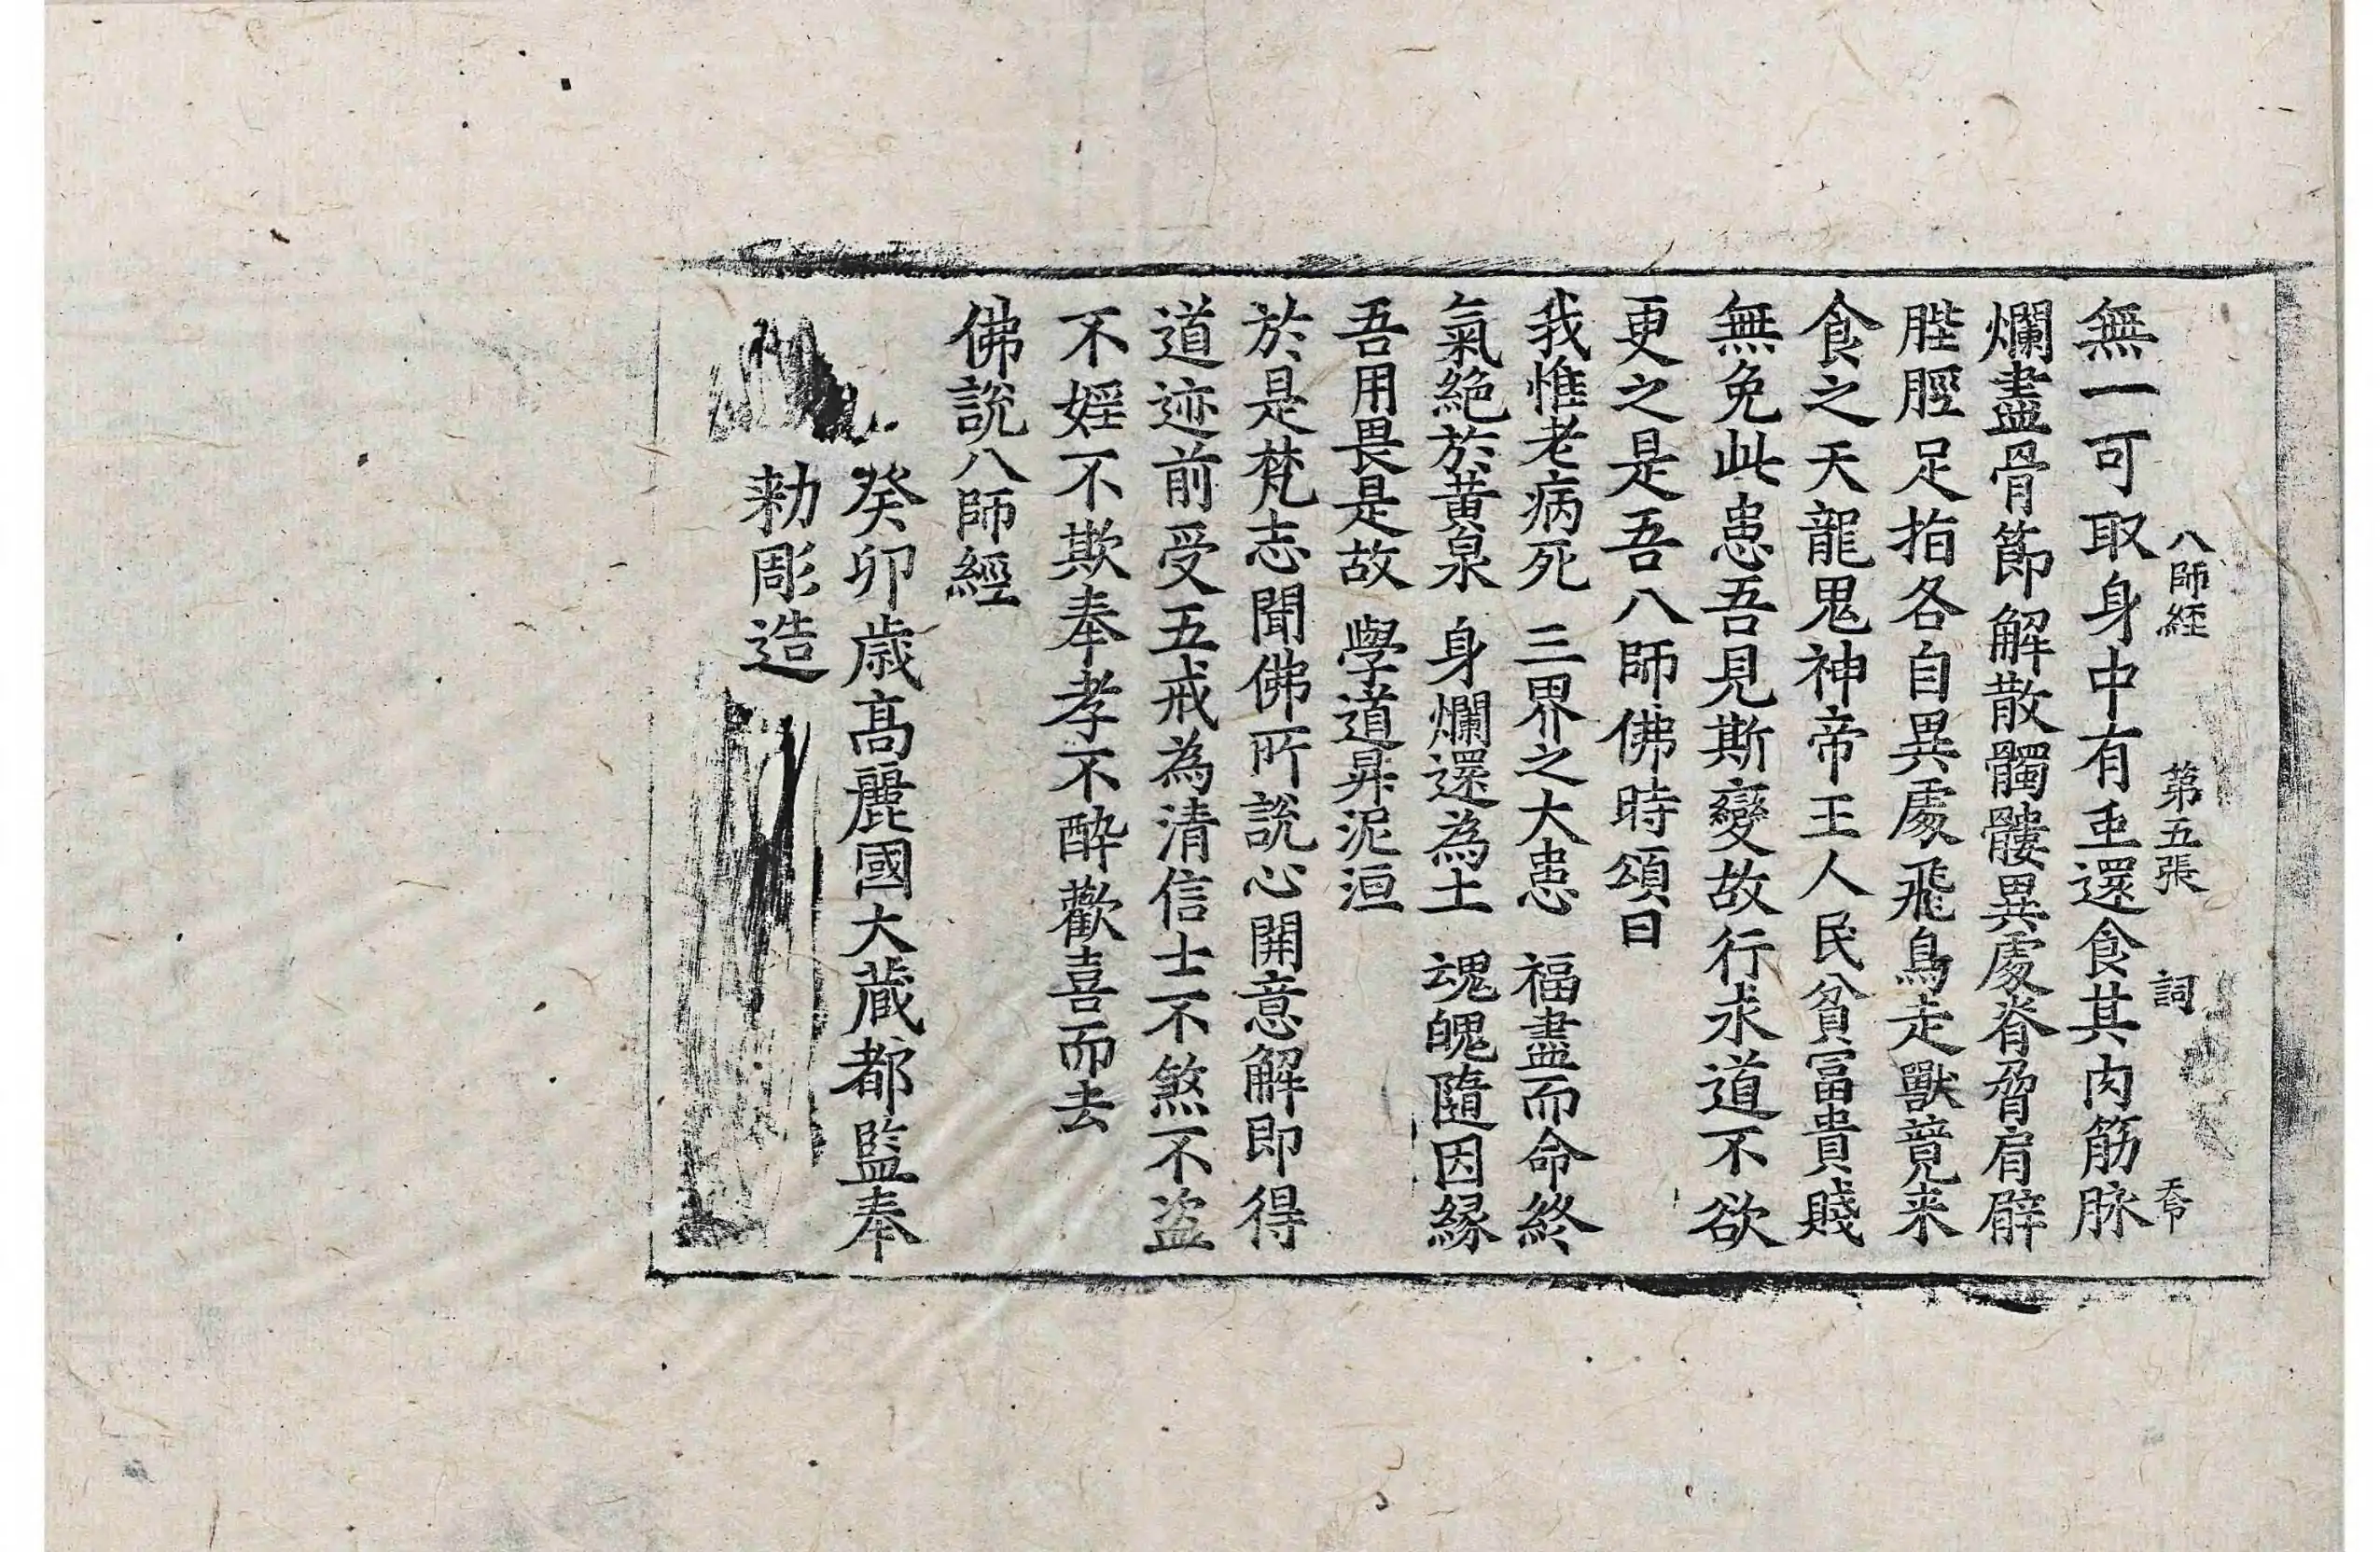 八師經 第五張 詞 天令
無一可取身中有䖝還食其肉筋脉
爛盡骨節解散髑髏異處脊脅肩臂
䏶脛足指各自異處飛鳥走獸競来
食之天龍鬼神帝王人民貧冨貴賤
無免此患吾見斯變故行求道不欲
更之是吾八師佛時頌曰
我惟老病死 三界之大患 福盡而命終
氣絶於黃泉 身爛還為土 魂魄隨因緣
吾用畏是故 學道昇泥洹
於是梵志聞佛所說心開意解即得
道迹前受五戒為清信士不煞不盗
不婬不欺奉孝不醉歡喜而去
佛說八師經
癸卯歳髙麗國大藏都監奉
勑彫造